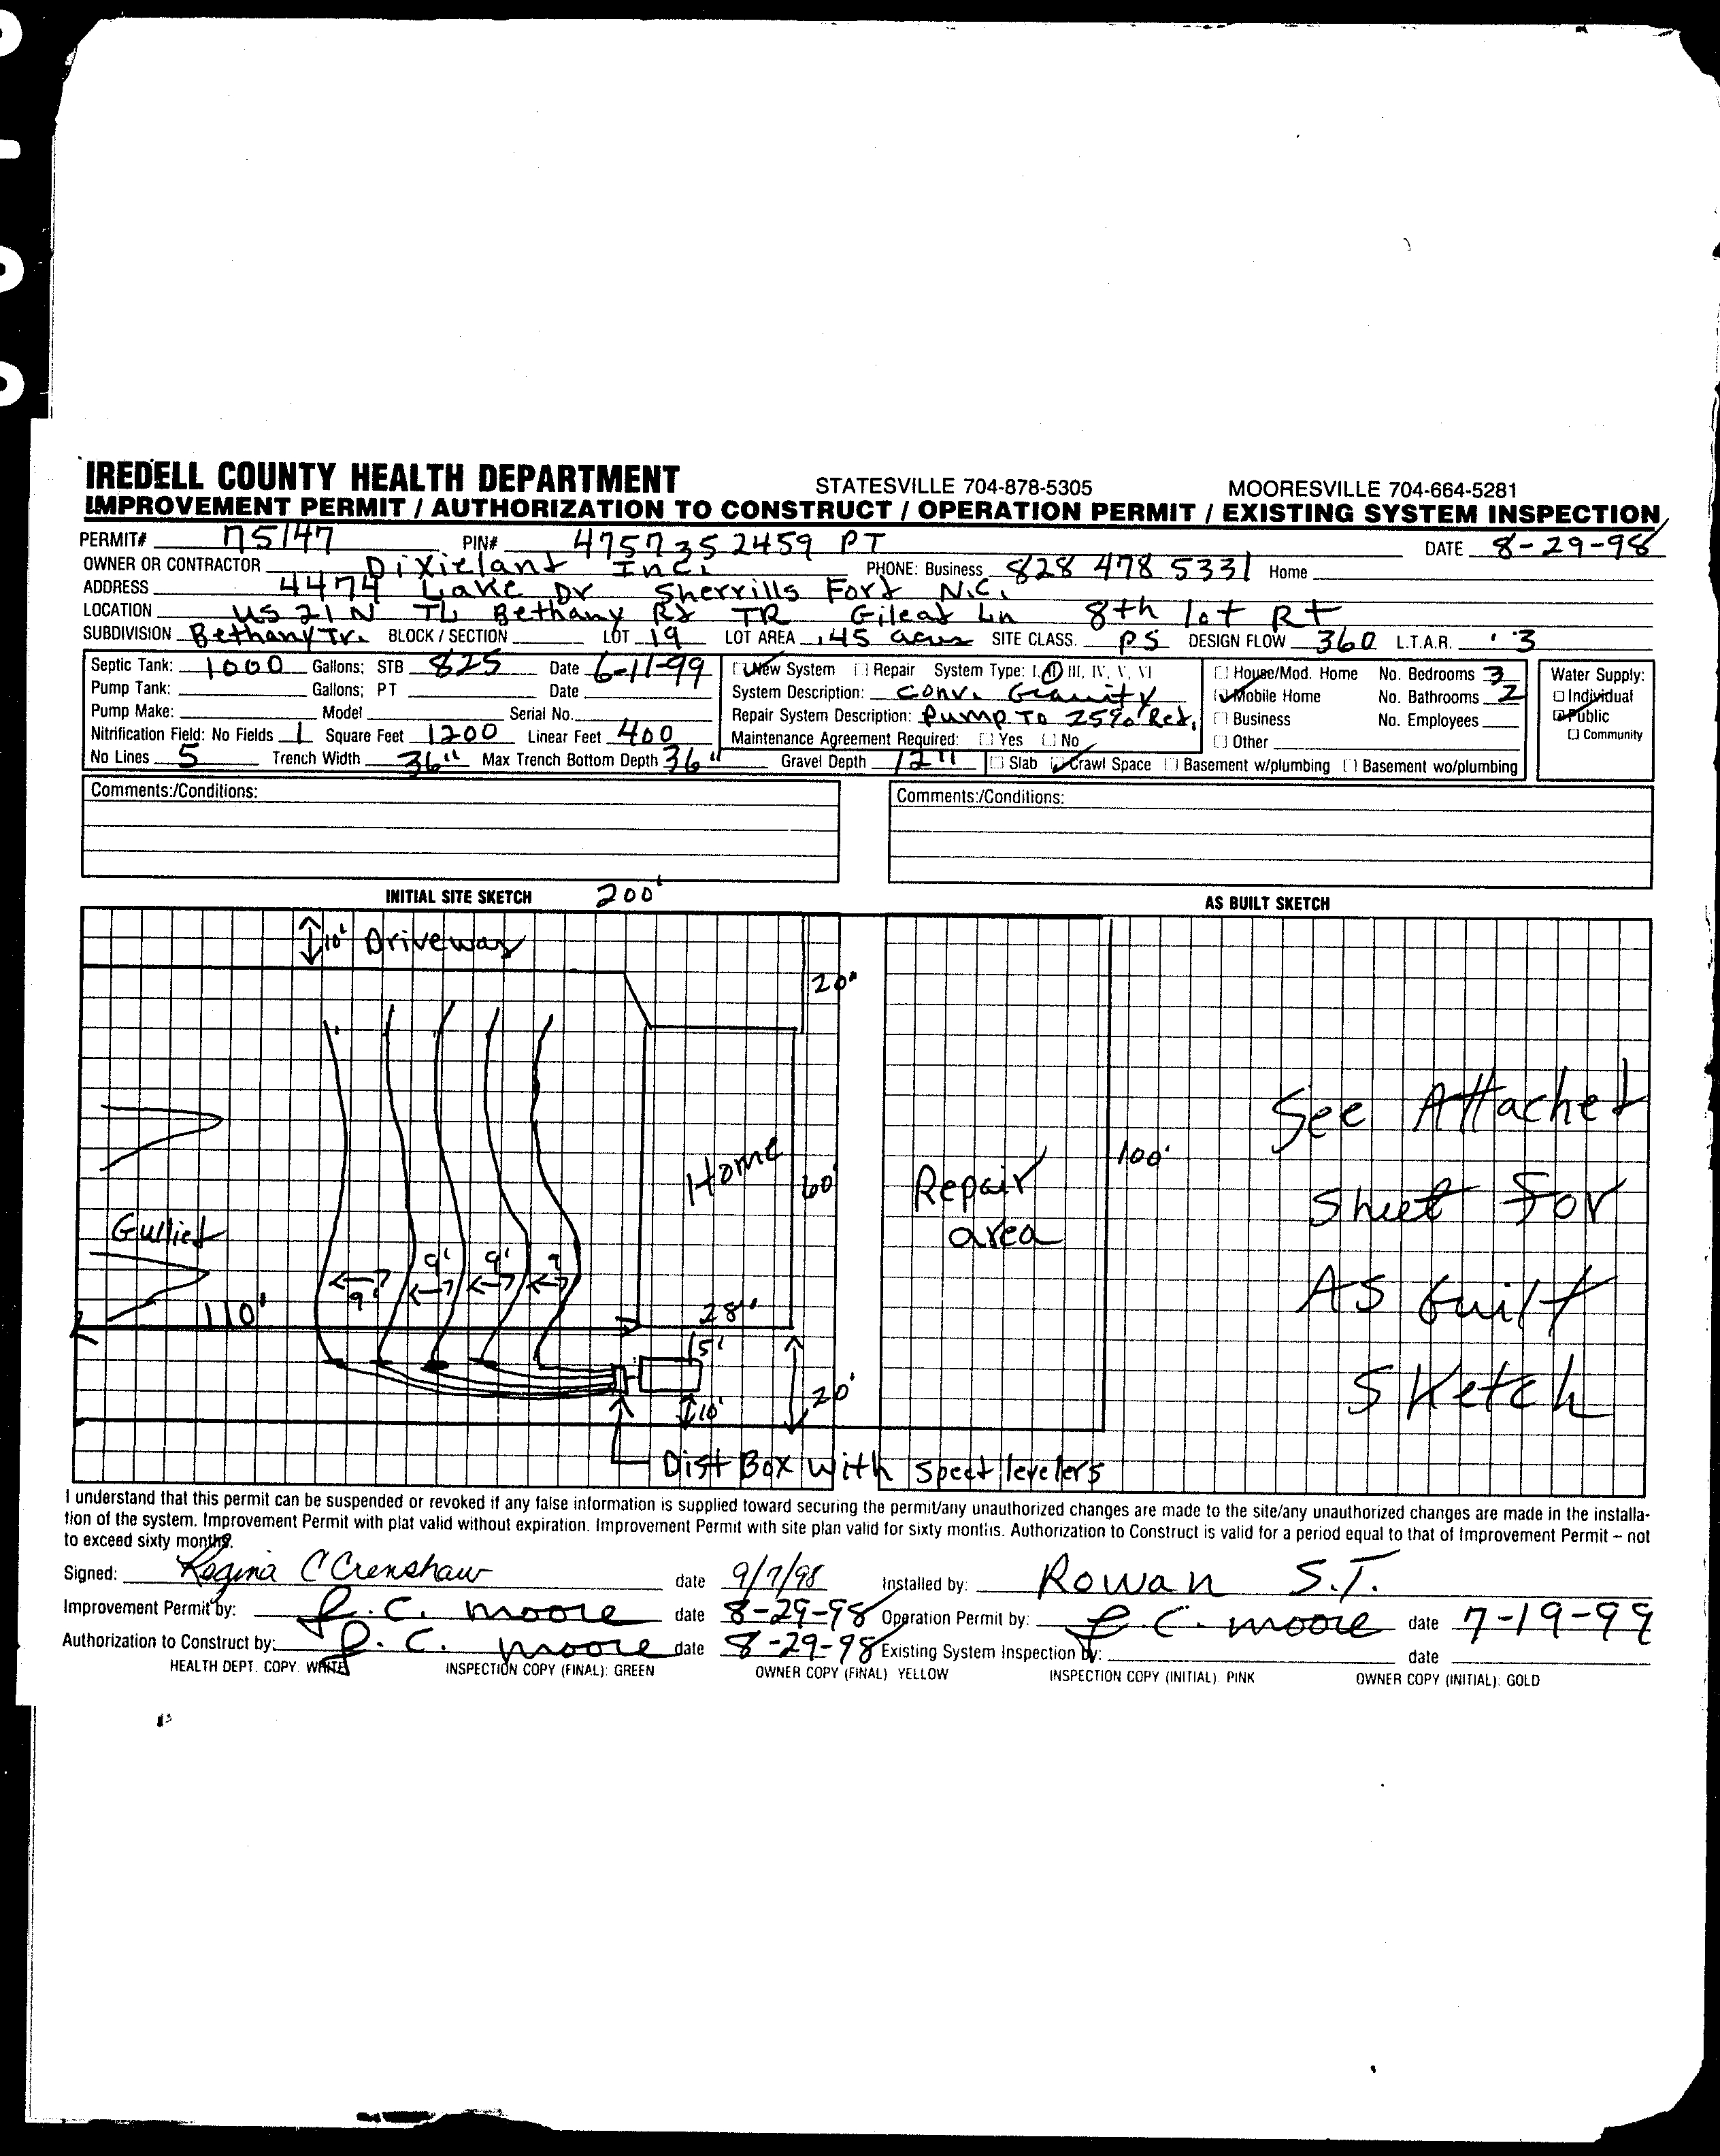 IREDELL COUNTY HEALTH DEPARTMENT STATESVILLE 704-878-5305 MOORESVILLE 704-664-5281
IMPROVEMENT PERMIT / AUTHORIZATION TO CONSTRUCT / OPERATION PERMIT / EXISTING SYSTEM INSPECTION
PERMIT# 75147 PIN# 4757352459 PT DATE 8-29-98
OWNER OR CONTRACTOR Dixieland Inc. PHONE: Business 828 478 5331 Home
ADDRESS 4474 Lake Dr Sherrills Ford N.C.
LOCATION US 21 N TL Bethany Rd TR Gilead Ln 8th lot Rt
SUBDIVISION Bethany Tr. BLOCK / SECTION LOT 19 LOT AREA .45 acres SITE CLASS. PS DESIGN FLOW 360 L.T.A.R. .3
Septic Tank: 1000 Gallons; STB 825 Date 6-11-99 New System Repair System Type: I, II, III, IV, V, VI House/Mod. Home No. Bedrooms 3 Water Supply:
Pump Tank: Gallons; PT Date System Description: Conv. Gravity Mobile Home No. Bathrooms 2 Individual
Pump Make: Model Serial No. Repair System Description: Pump To 25% Red. Business No. Employees Public
Nitrification Field: No Fields 1 Square Feet 1200 Linear Feet 400 Maintenance Agreement Required: Yes No Other Community
No Lines 5 Trench Width 36" Max Trench Bottom Depth 36" Gravel Depth 12" Slab Crawl Space Basement w/plumbing Basement wo/plumbing
Comments:/Conditions: Comments:/Conditions:
INITIAL SITE SKETCH 200' AS BUILT SKETCH
10' Driveway
20'
See Attached
Home 60' Repair 100'
Sheet For
Gullied area
9' 9' 9
9'
As built
110' 28'
5'
Sketch
20'
10'
Dist Box with Speed levelers
I understand that this permit can be suspended or revoked if any false information is supplied toward securing the permit/any unauthorized changes are made to the site/any unauthorized changes are made in the installa-
tion of the system. Improvement Permit with plat valid without expiration. Improvement Permit with site plan valid for sixty months. Authorization to Construct is valid for a period equal to that of Improvement Permit – not
to exceed sixty months.
Signed: Regina C Crenshaw date 9/7/98 Installed by: Rowan S.T.
Improvement Permit by: J.C. Moore date 8-29-98 Operation Permit by: J.C. Moore date 7-19-99
Authorization to Construct by: J.C. Moore date 8-29-98 Existing System Inspection by: date
HEALTH DEPT. COPY: WHITE INSPECTION COPY (FINAL): GREEN OWNER COPY (FINAL) YELLOW INSPECTION COPY (INITIAL). PINK OWNER COPY (INITIAL): GOLD